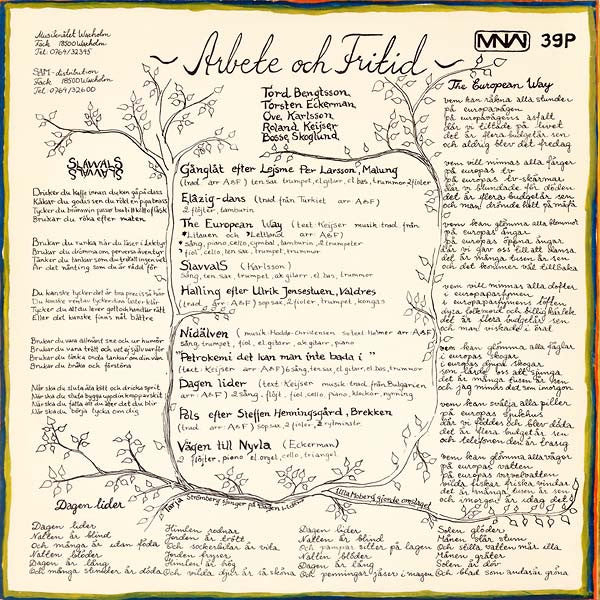 Musiknätet Waxholm
Fack 18500 Waxholm
Tel. 0764/32345
SAM-distribution
Fack 18500 Waxholm
Tel 0764/32600
MNW 39P
~ Arbete och Fritid ~
Tord Bengtsson
Torsten Eckerman
Ove Karlsson
Roland Keijser
Bosse Skoglund
SLAVVALS
Dricker du kaffe innan du kan gå på dass
Brukar du röka efter maten
Brukar du runka när du läser i
Brukar du drömma om perversa äventyr
Är det nånting som du är rädd för
Du kanske tycker det är bra precis så här
Eller det kanske finns nåt bättre
Brukar du vara allmänt sne och ur humör
Brukar du vara trött och vet ej själv varför
Brukar du tänka onda tankar om din vän
Brukar du bråka och förstöra
När ska du sluta äta kött och dricka sprit
När ska du börja tycka om dig
Gånglåt efter Lejsme Per Larsson, Malung
(trad arr A&F) ten sax trumpet, el.gitar, el bas, trummor 2 fioler
Eläzig-dans (trad från Turkiet arr A&F)
2 flöjter, tamburin
The European Way (text: Keijser musik trad från
*Litauen och *Lettland arr A&F)
*sång, piano, cello, cymbal, tamburin, 2 trumpeter
*fiol, cello, ten sax, trumpet, trummor
SlavvalS (Karlsson)
Sång, ten sax, trumpet, ak gitarr, el bas, trummor
Halling efter Ulrik Jensestuen, Valdres
(trad arr A&F) sop sax, 2 fioler, trumpet, kongas
Nidälven (musik: Christensen
sång, trumpet, fiol, el gitarr, ak gitarr, piano
"Petrokemi det kan man inte bada i"
(text: Keijser arr A&F) sång, ten sax, el gitarr, el bas, trummor
Dagen lider (text Keijser musik trad från Bulgarien
arr A&F) 2 sång, flöjt, fiol, cello, piano, klockor, nyckning
Påls efter Steffen Henningsgård, Brekken
(trad arr A&F) sop sax, 2 fioler,
Vägen till Nyvla (Eckerman)
2 flöjter, piano el.orgel, cello, triangel
Tarja Strömberg sjunger på Dagen Lider
Ulla Moberg gjorde omslaget
The European Way
vem kan räkna alla stunder
på europavägen
på europavägens asfalt
där vi tilltade på livet
det är flera budgetår sen
och aldrig blev det fredag
vem vill minnas alla färger
på europas tv
på europas tv-skärmar
där vi blundade för döden
det är flera budgetår sen
och man drömde
vem kan glömma alla blommor
på europas ängar
på europas öppna ängar
där vi gav oss till att dansa
det är många tusen år sen
och det kommer väl tillbaka
vem vill minnas alla dofter
i europaparfymen
i europaparfymens
dyra folkmord och billig kärlek
det är flera budgetår sen
och man viskade i örat
vem kan glömma alla fåglar
i europas skogar
i europas djupa skogar
som lärde oss att sjunga
det är många tusen år sen
och jag minns det som imorgon
vem kan svälja alla piller
på europas sjukhus
där vi föddes och blev döda
det är flera budgetår sen
och telefonen den är trasig
vem kan glömma alla vågor
på europas vatten
på europas virvelvatten
vilda fiskar friska vindar
det är många tusen år sen
och imorgon är idag det
Dagen lider
Dagen lider
Natten är blind
Och många är utan föda
Natten blöder
Dagen är lång
Och många stunder är döda
Himlen rodnar
Jorden är trött
Och sockerbitar är vita
Jorden fryser
Himlen är hög
Och vilda djur är så sköna
Dagen lider
Natten är blind
Och pampar sitter på lagen
Natten blöder
Dagen är lång
Och penningar jäser i magen
Solen glöder
Månen står stum
Och stilla vatten mår illa
Månen gråter
Solen är döv
Och blad som andas är gröna